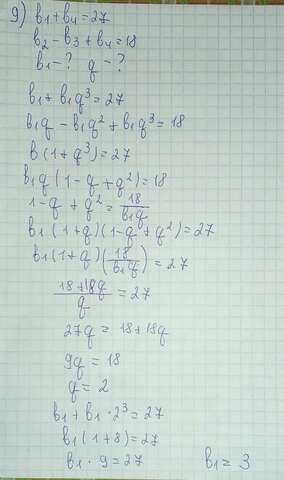 9) в₁ + в₄ = 27
в₂ - в₃ + в₄ = 18
в₁ - ? q - ?
в₁ + в₁q³ = 27
в₁q - в₁q² + в₁q³ = 18
в(1 + q³) = 27
в₁q (1 - q + q²) = 18
1 - q + q² = 18/в₁q
в₁ (1 + q)(1 - q + q²) = 27
в₁ (1 + q) (18/в₁q) = 27
18 + 18q / q = 27
27q = 18 + 18q
9q = 18
q = 2
в₁ + в₁ · 2³ = 27
в₁ (1 + 8) = 27
в₁ · 9 = 27 в₁ = 3